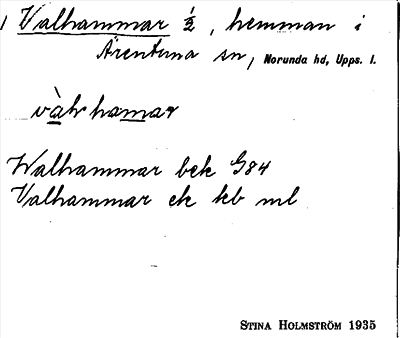 Valhammar ½, hemman i
Ärentuna sn, Norunda hd, Upps. l.
vàlhamar
Walhammar bek G84
Valhammar ek kb ml
STINA HOLMSTRÖM 1935